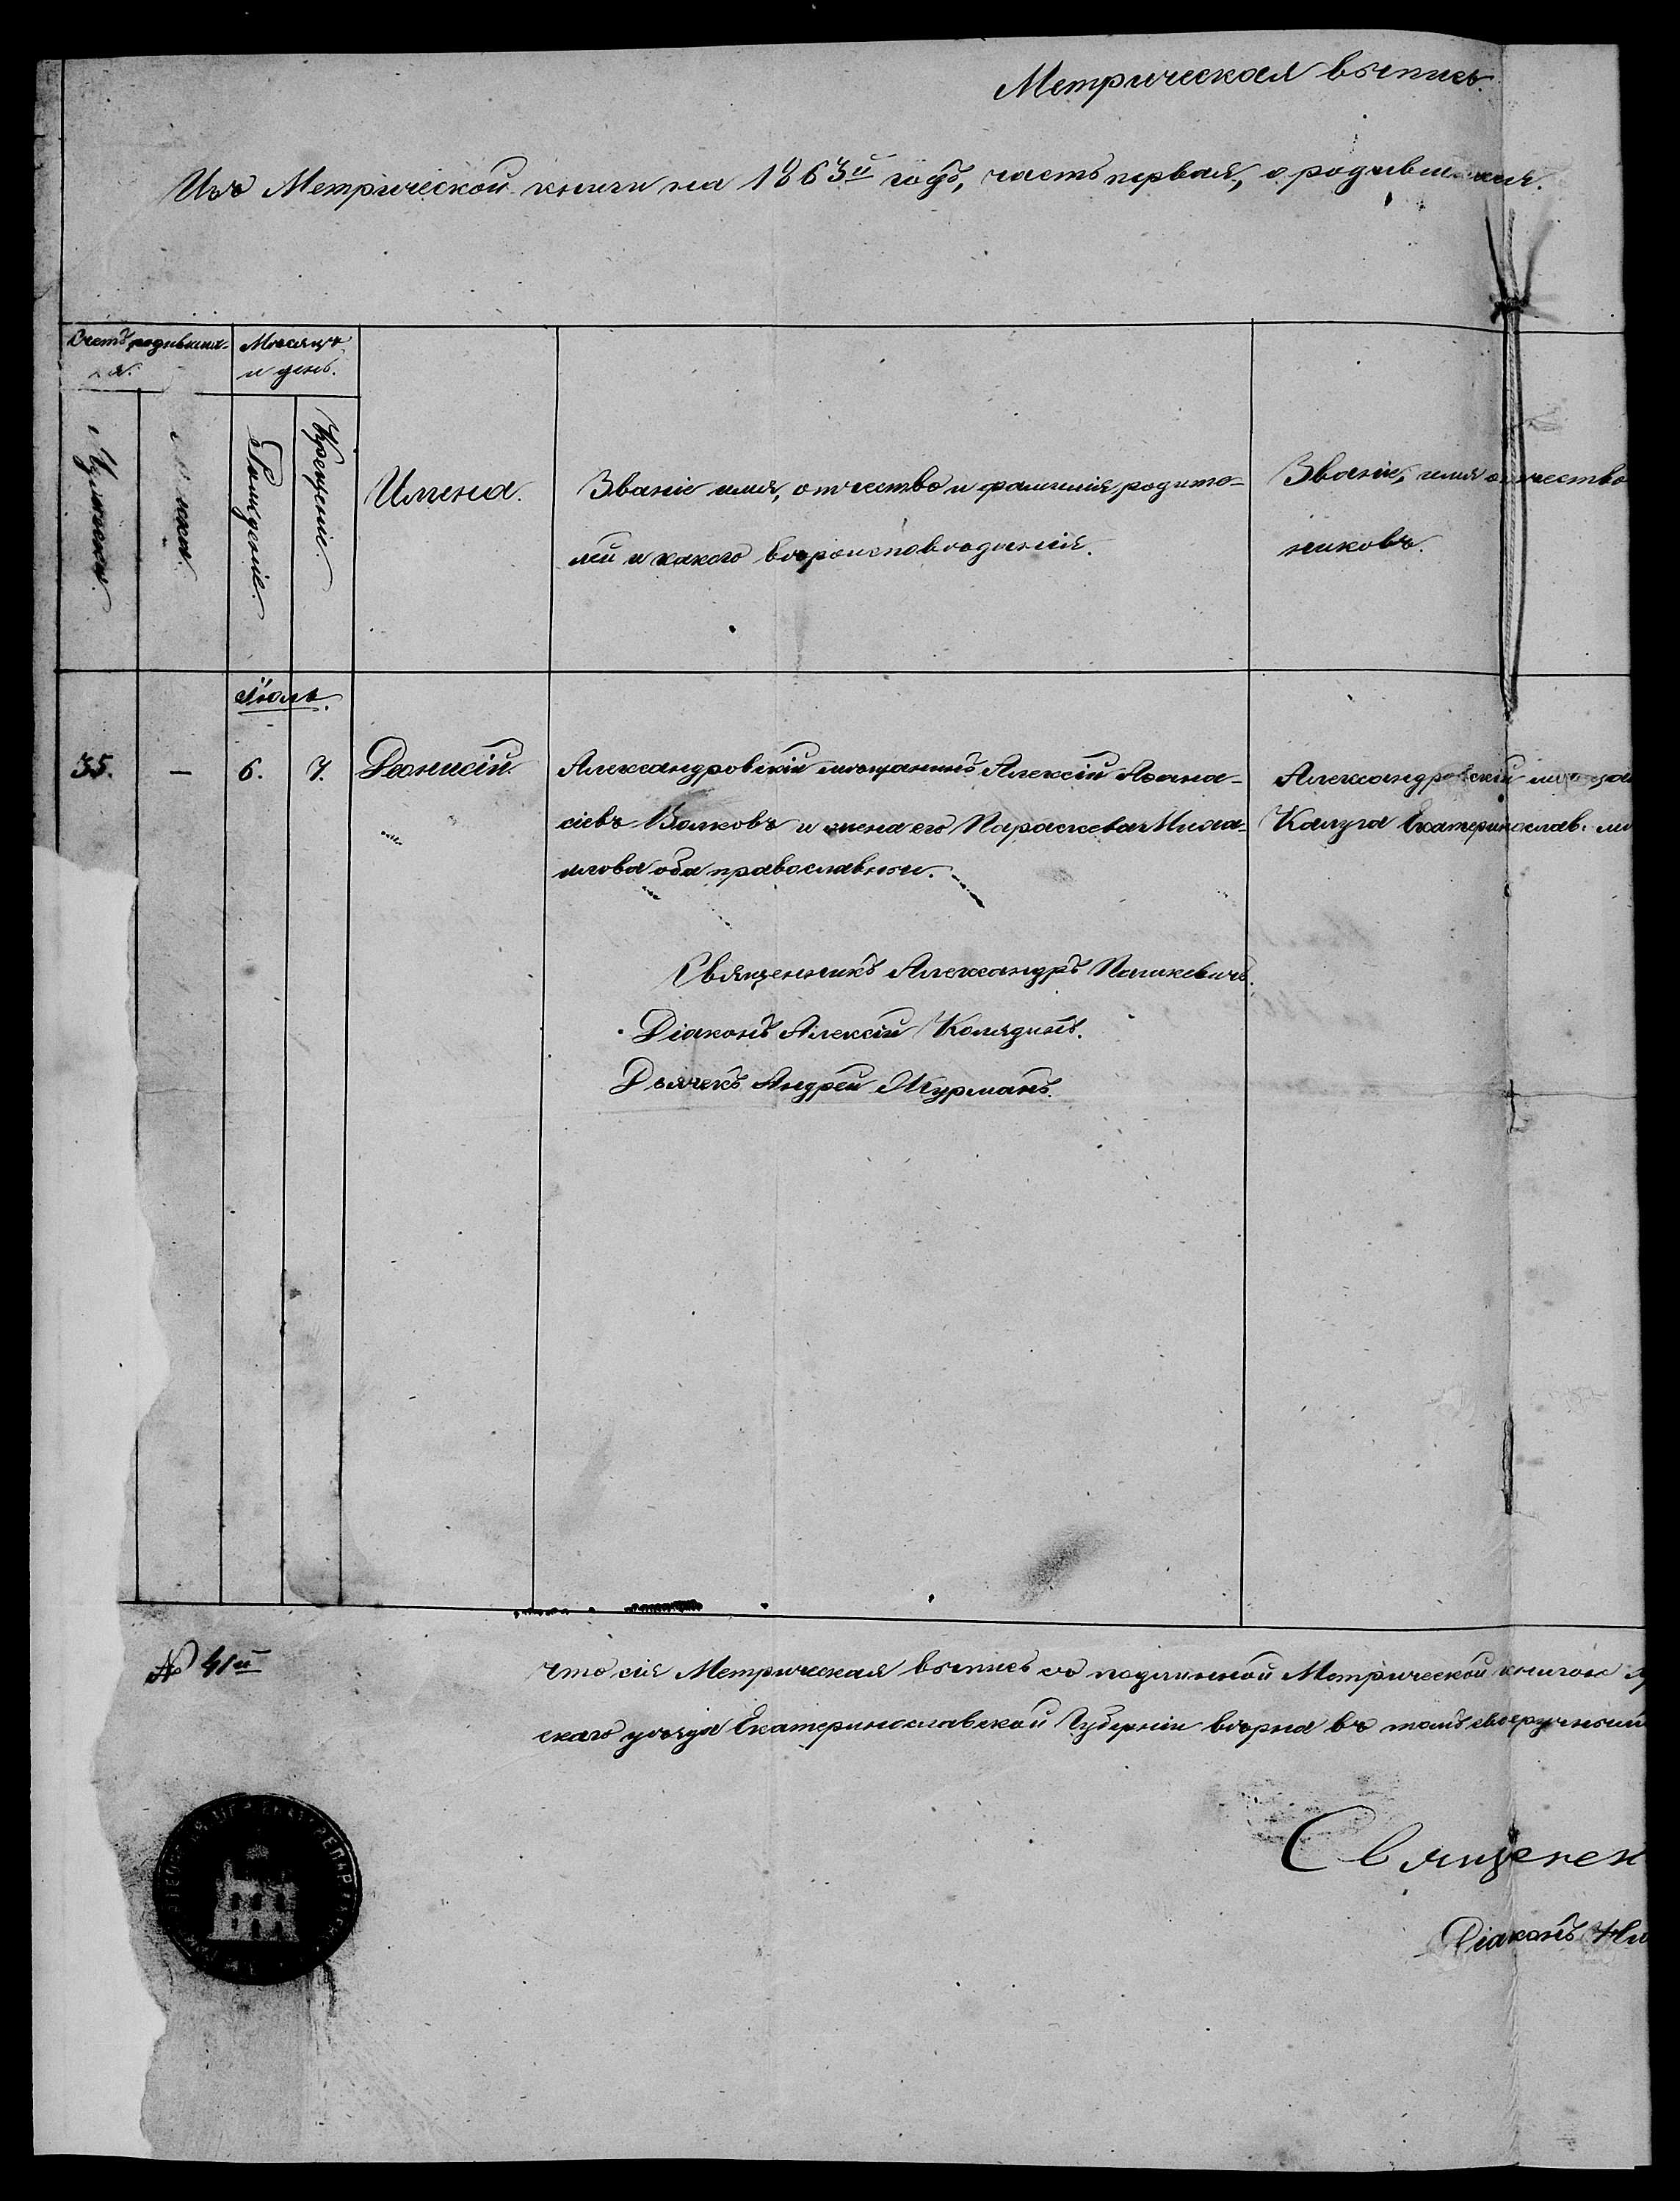 Метрическая выпись.
Изъ Метрической книги на 1863й годъ, часть первая, о родившихся.
Счетъ родивших-
ся.
Мѣсяцъ
и день.
Мужеска.
Женска.
Рожденіе.
Крещеніе.
Имена.
Званіе имя, отчество и фамилія родите-
лей и какого вѣроисповѣданія.
Званіе, имя отчество
никовъ.
Іюль.
35.
—
6.
7.
Деонисій.
Александровскій мѣщанинъ Алексій Аѳана-
сіевъ Волковъ и жена его Параскева
оба православные.
Александровскій
Калуга Екатеринослав.
Священникъ Александръ Пашкевичъ.
Діаконъ Алексій Колядинъ.
Дьячекъ Андрей Мурманъ.
№ 41й
что сія Метрическая выпись съ подлинной Метрической книгою
скаго уѣзда Екатеринославской Губерніи вѣрна въ томъ своеручным
Священ
Діаконъ